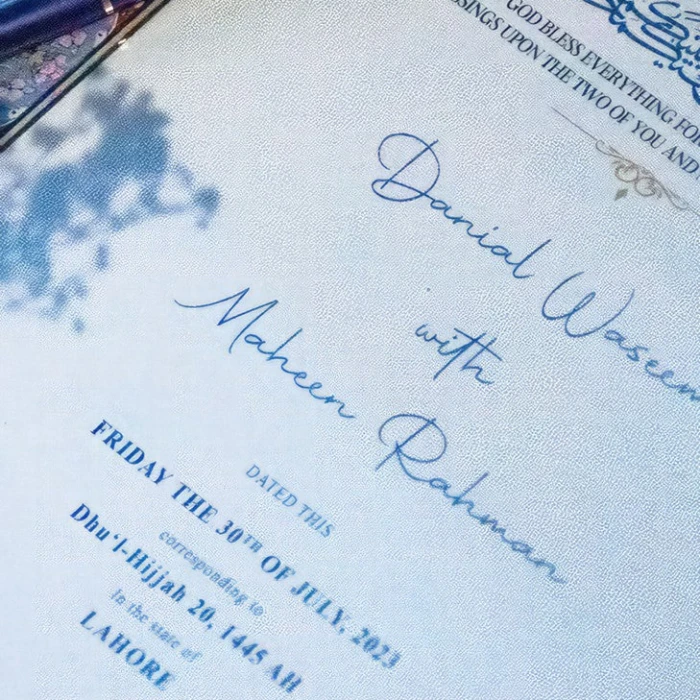 GOD BLESS EVERYTHING FOR
UPON THE TWO OF YOU AND
Danial Waseem
with
Maheen Rahman
DATED THIS
FRIDAY THE 30TH OF JULY, 2023
corresponding to
Dhu'l-Hijjah 20, 1445 AH
In the state of
LAHORE